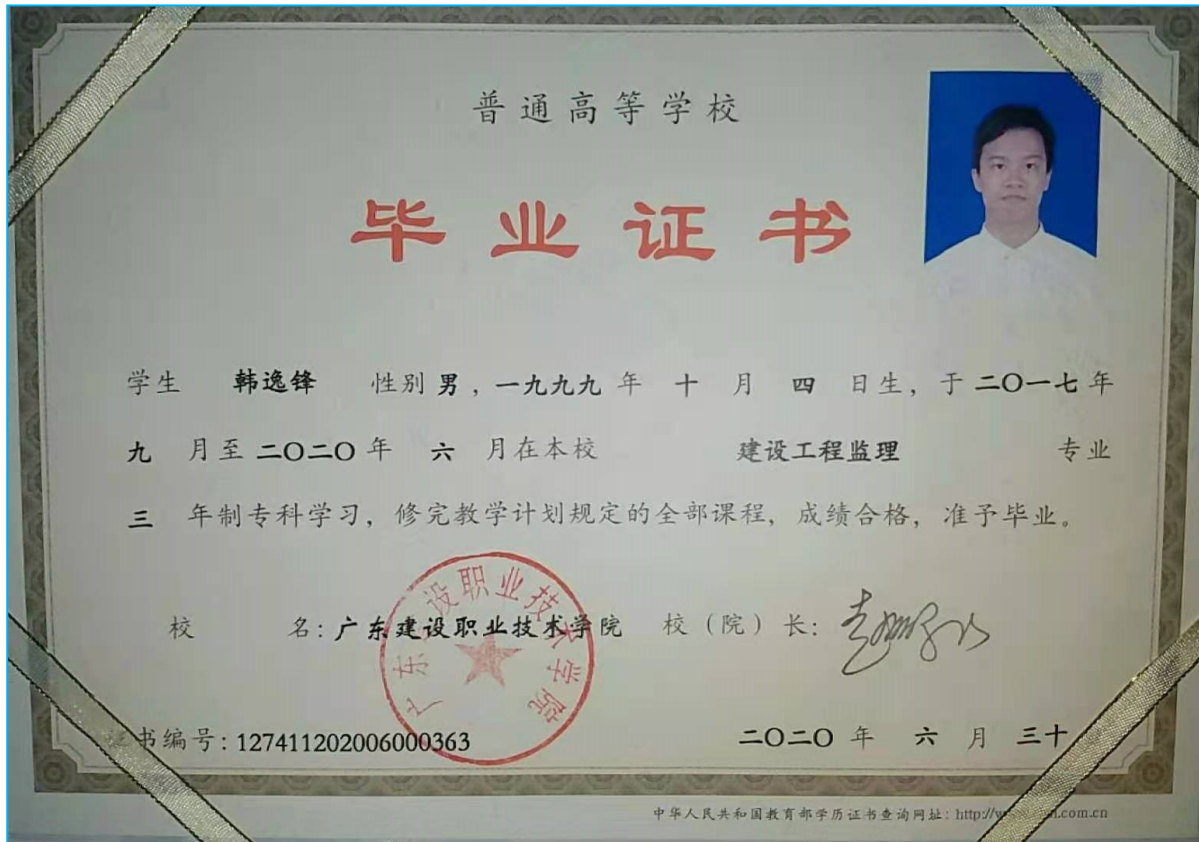 普通高等学校
毕业证书
学生 韩逸锋 性别 男，一九九九 年 十 月 四 日生，于 二〇一七 年
九 月至 二〇二〇 年 六 月在本校 建设工程监理 专业
三 年制专科学习，修完教学计划规定的全部课程，成绩合格，准予毕业。
校 名：广东建设职业技术学院 校（院）长：
广东建设职业技术学院
书编号：127411202006000363 二〇二〇 年 六 月 三十
中华人民共和国教育部学历证书查询网址：http://w .com.cn